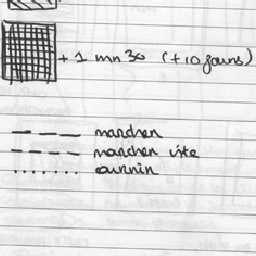 + 1 mn 30 (+ 10 jours)
marcher
marcher vite